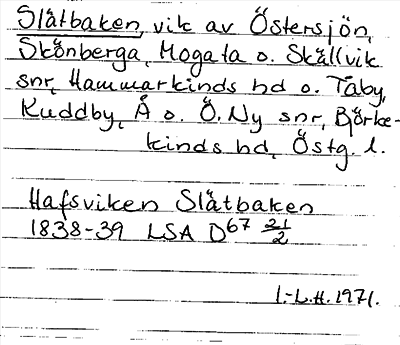 Slätbaken, vik av Östersjön,
Skönberga, Mogata o. Skällvik
snr, Hammarkinds hd o. Tåby,
Kuddby, Å o. Ö. Ny snr, Björke-
kinds hd, Östg. l.
Hafsviken Slätbaken
1838-39 LSA D67 21/2
I.-L.H. 1971.